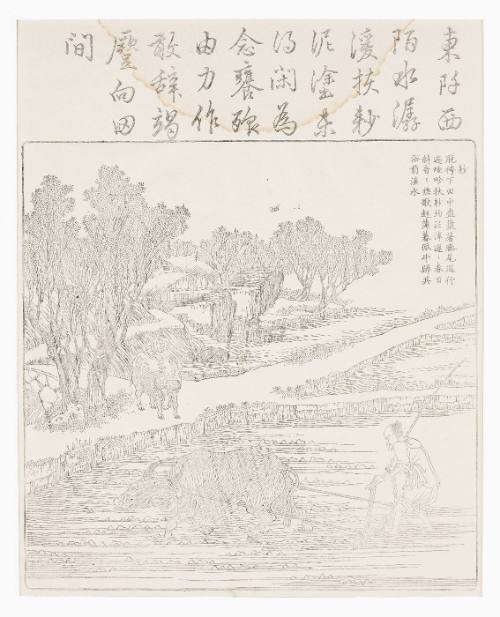 東阡西
陌水潺
湲扶耖
泥塗未
得閑為
念饔飱
由力作
敢辭竭
蹷向田
間
耖
脫袴下田中盎漿著塍尾巡行
遍畦畛扶耖均泥滓遲〻春日
斜稍〻樵歌起薄暮佩牛歸共
浴前溪水